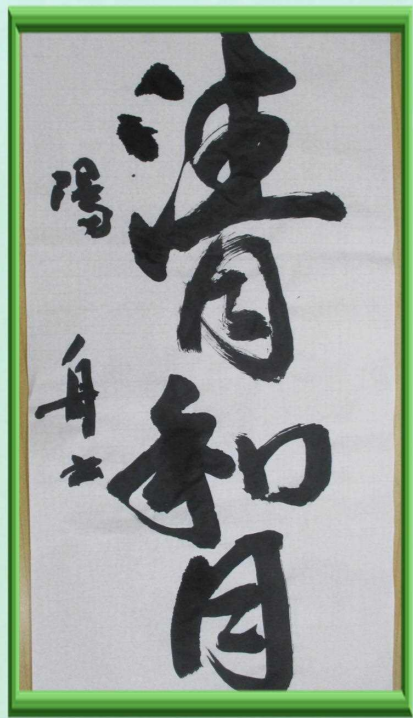 清和月
陽舟書